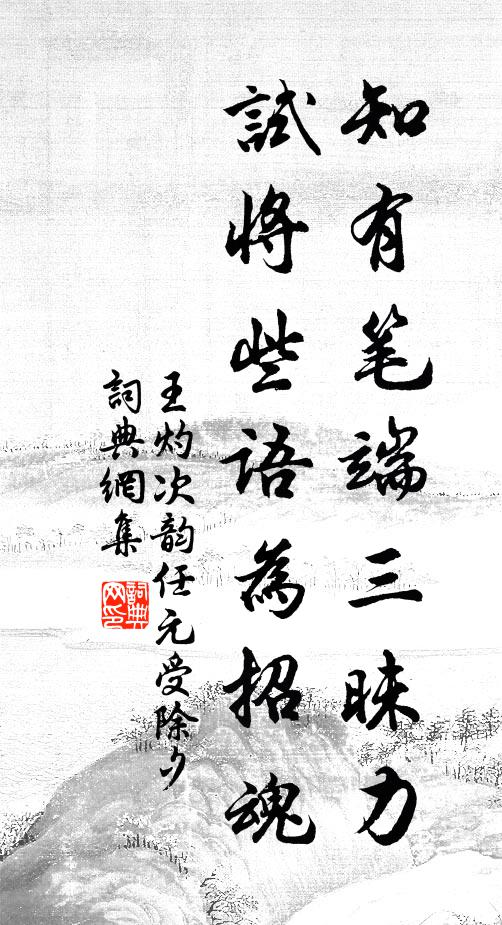 知有笔端三昧力
試將些語為招魂
王灼次韵任元受除夕
詞典網集
詞典网印